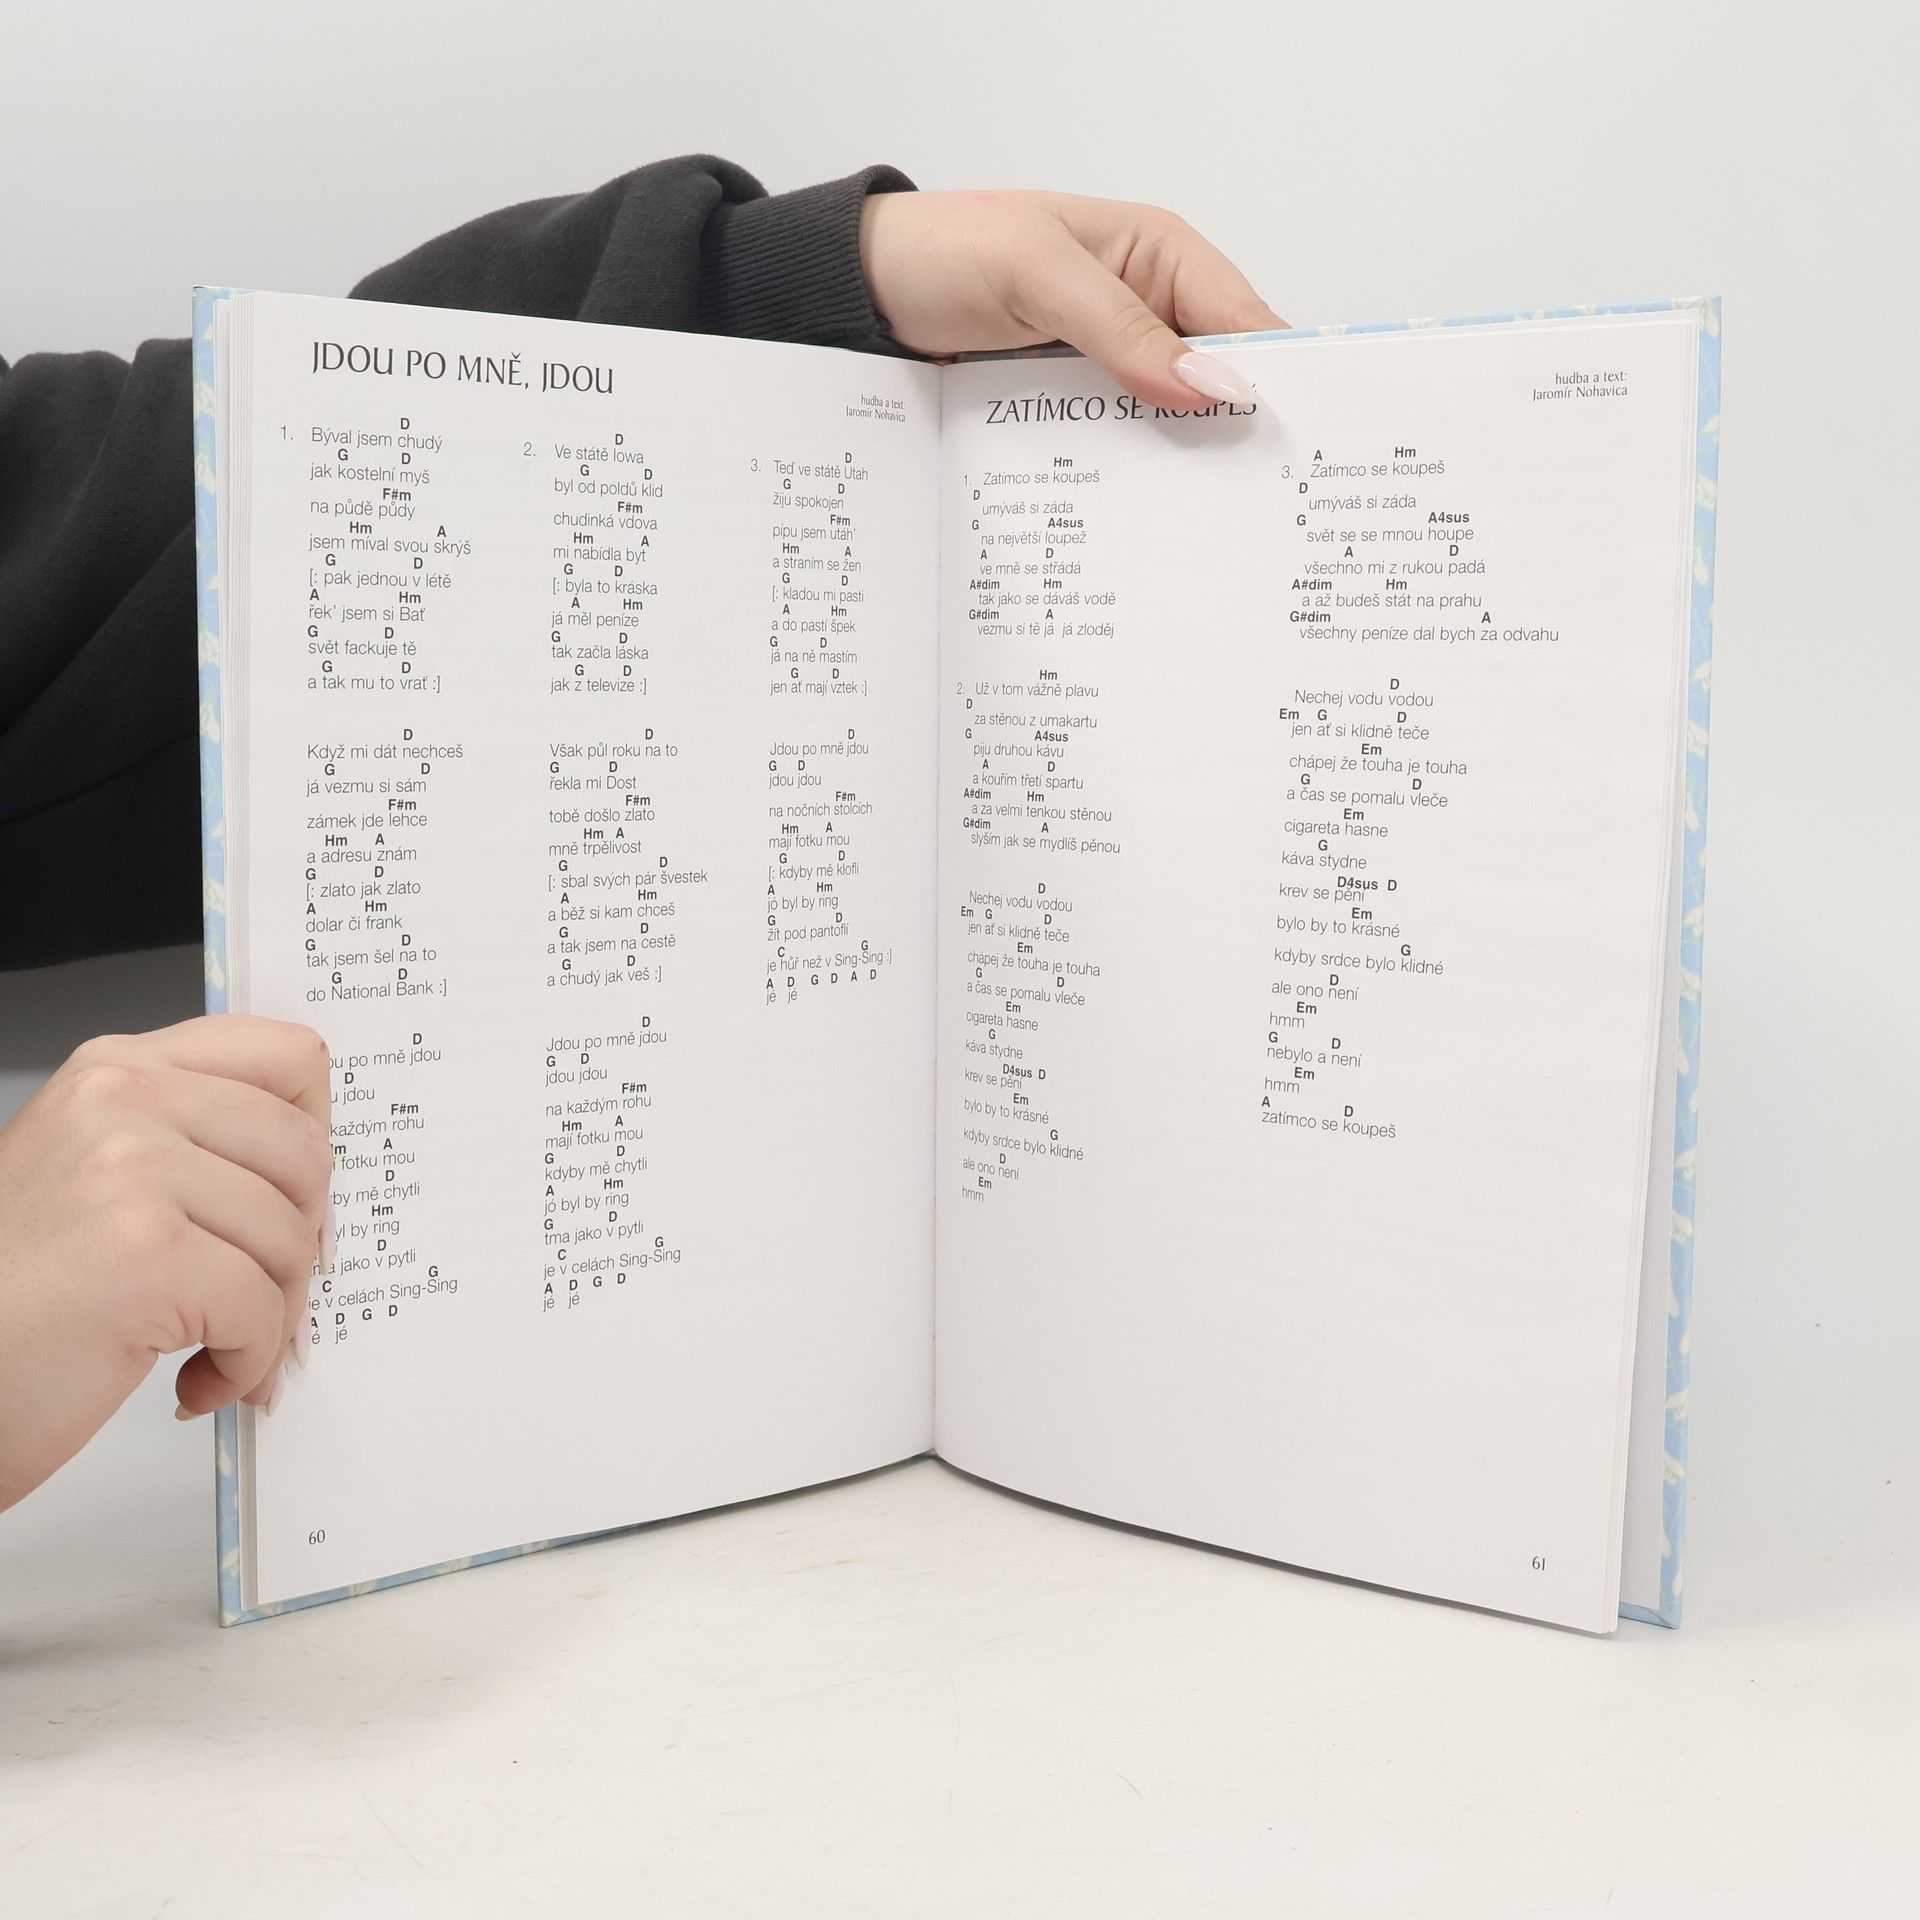 JDOU PO MNĚ, JDOU
hudba a text:
Jaromír Nohavica
D
1. Býval jsem chudý
G D
jak kostelní myš
F#m
na půdě půdy
Hm A
jsem míval svou skrýš
G D
[: pak jednou v létě
A Hm
řek' jsem si Bať
G D
svět fackuje tě
G D
a tak mu to vrať :]
D
Když mi dát nechceš
G D
já vezmu si sám
F#m
zámek jde lehce
Hm A
a adresu znám
G D
[: zlato jak zlato
A Hm
dolar či frank
G D
tak jsem šel na to
G D
do National Bank :]
D
po mně jdou
D
jdou
F#m
každým rohu
A
fotku mou
D
mě chytli
Hm
by ring
D
jako v pytli
C G
je v celách Sing-Sing
A D G D
jé
D
2. Ve státě Iowa
G D
byl od poldů klid
F#m
chudinká vdova
Hm A
mi nabídla byt
G D
[: byla to kráska
A Hm
já měl peníze
G D
tak začla láska
G D
jak z televize :]
D
Však půl roku na to
G D
řekla mi Dost
F#m
tobě došlo zlato
Hm A
mně trpělivost
G D
[: sbal svých pár švestek
A Hm
a běž si kam chceš
G D
a tak jsem na cestě
G D
a chudý jak veš :]
D
Jdou po mně jdou
G D
jdou jdou
F#m
na každým rohu
Hm A
mají fotku mou
G D
kdyby mě chytli
A Hm
jó byl by ring
G D
tma jako v pytli
C G
je v celách Sing-Sing
A D G D
jé jé
D
3. Teď ve státě Utah
G D
žiju spokojen
F#m
pípu jsem utáh'
Hm A
a straním se žen
G D
[: kladou mi pasti
A Hm
a do pastí špek
G D
já na ně mastím
G D
jen ať mají vztek :]
D
Jdou po mně jdou
G D
jdou jdou
F#m
na nočních stolcích
Hm A
mají fotku mou
G D
[: kdyby mě klofli
A Hm
jó byl by ring
G D
žít pod pantoflí
C G
je hůř než v Sing-Sing :]
A D G D A D
jé jé
60
ZATÍMCO SE KOUPEŠ
hudba a text:
Jaromír Nohavica
Hm
1. Zatímco se koupeš
D
umýváš si záda
G A4sus
na největší loupež
A D
ve mně se střádá
A#dim Hm
tak jako se dáváš vodě
G#dim A
vezmu si tě já já zloděj
Hm
2. Už v tom vážně plavu
D
za stěnou z umakartu
G A4sus
piju druhou kávu
A D
a kouřím třetí spartu
A#dim Hm
a za velmi tenkou stěnou
G#dim A
slyším jak se mydlíš pěnou
D
Nechej vodu vodou
Em G D
jen ať si klidně teče
Em
chápej že touha je touha
G D
a čas se pomalu vleče
Em
cigareta hasne
G
káva stydne
D4sus D
krev se pění
Em
bylo by to krásné
G
kdyby srdce bylo klidné
D
ale ono není
Em
hmm
A Hm
3. Zatímco se koupeš
D
umýváš si záda
G A4sus
svět se se mnou houpe
A D
všechno mi z rukou padá
A#dim Hm
a až budeš stát na prahu
G#dim A
všechny peníze dal bych za odvahu
D
Nechej vodu vodou
Em G D
jen ať si klidně teče
Em
chápej že touha je touha
G D
a čas se pomalu vleče
Em
cigareta hasne
G
káva stydne
D4sus D
krev se pění
Em
bylo by to krásné
G
kdyby srdce bylo klidné
D
ale ono není
Em
hmm
G D
nebylo a není
Em
hmm
A D
zatímco se koupeš
61